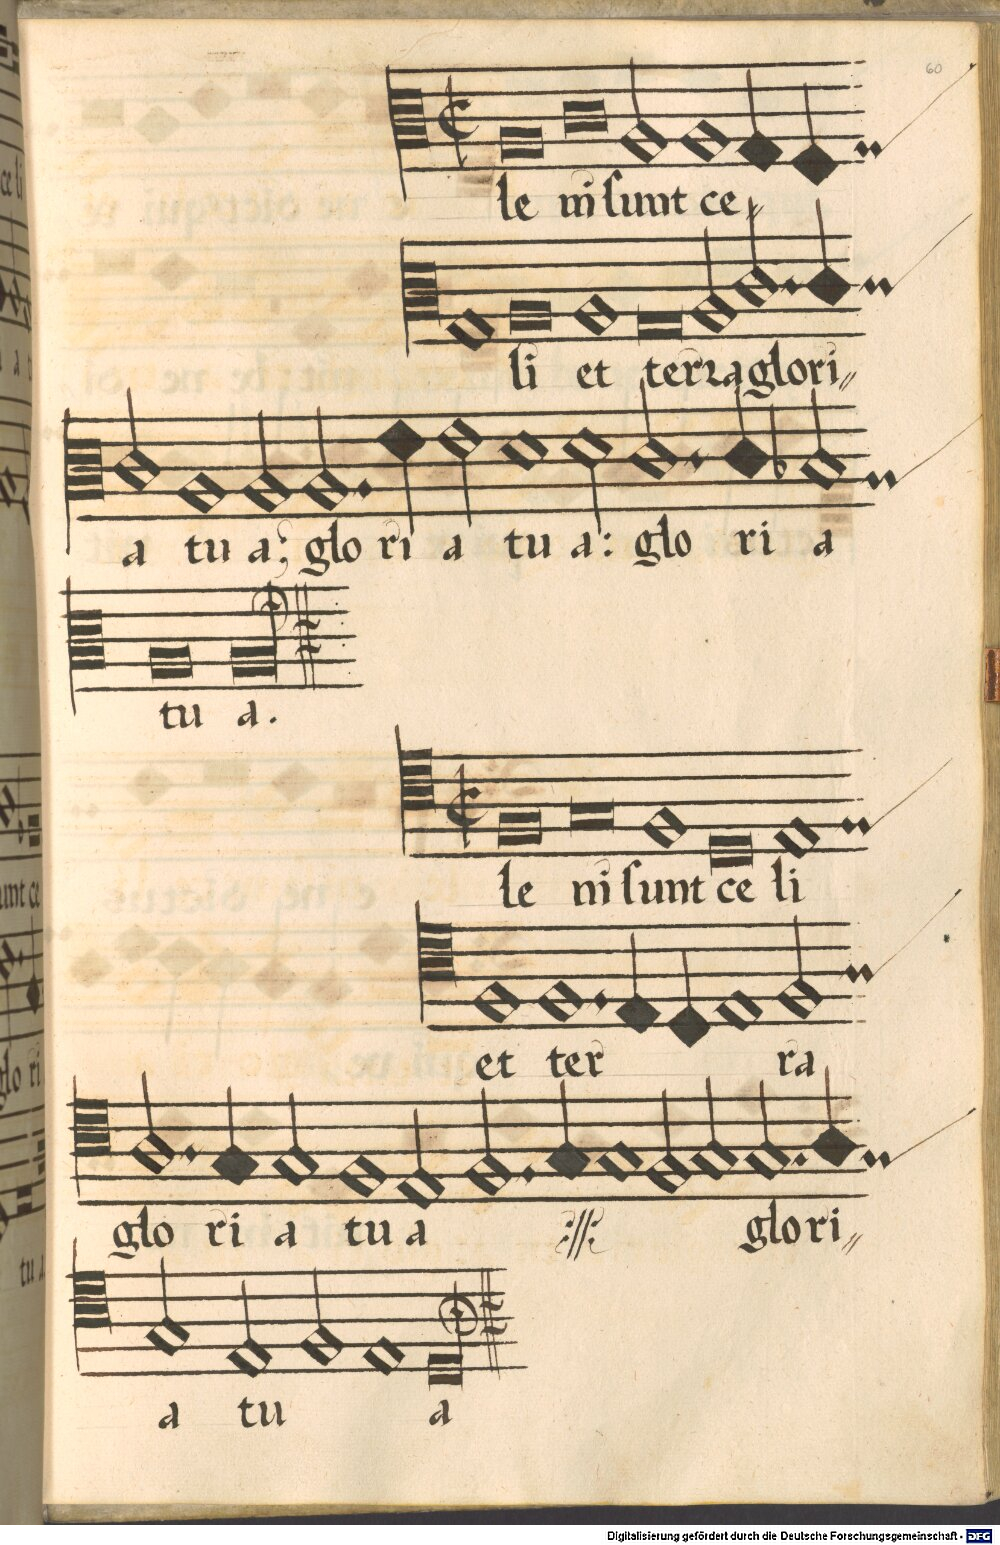 60
le ni sunt ce
li et terra glori
a tu a: glo ri a tu a: glo ri a
tu a.
le ni sunt ce li
et ter ra
glo ri a tu a glo ri
a tu a
Digitalisierung gefördert durch die Deutsche Forschungsgemeinschaft - DFG